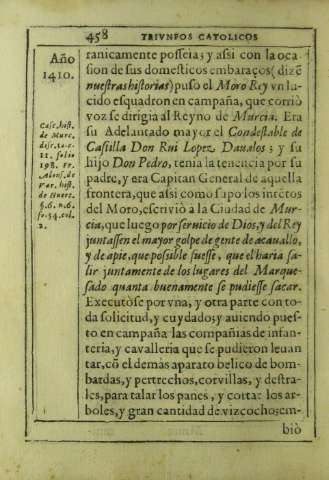 458 TRIVNFOS CATOLICOS
Año
1410.
Casc. hist.
de Murc.
disc.10.c.
11. folio
198. Fr.
Alons. de
Var. hist.
de Huert.
§.6. n.6.
fo.54. col.
2.
ranicamente posseia; y assi con la oca
sion de sus domesticos embaraços (dizē
nuestras historias) puso el Moro Rey vn lu-
cido esquadron en campaña, que corriò
voz se dirigia al Reyno de Murcia. Era
su Adelantado mayor el Condestable de
Castilla Don Rui Lopez Daualos; y su
hijo Don Pedro, tenia la tenencia por su
padre, y era Capitan General de aquella
frontera, que assi como supo los intētos
del Moro, escriviò a la Ciudad de Mur-
cia, que luego por servicio de Dios, y del Rey
juntassen el mayor golpe de gente de acauallo,
y de apie, que possible fuesse, que el haria sa-
lir juntamente de los lugares del Marque-
sado quanta buenamente se pudiesse sacar.
Executòse por vna, y otra parte con to-
da solicitud, y cuydado; y auiendo pues-
to en campaña las compañias de infan-
teria, y cavalleria que se pudieron leuan
tar, cō el demàs aparato belico de bom-
bardas, y pertrechos, corvillas, y destra-
les, para talar los panes, y cortar los ar-
boles, y gran cantidad de vizcocho; em-
biò